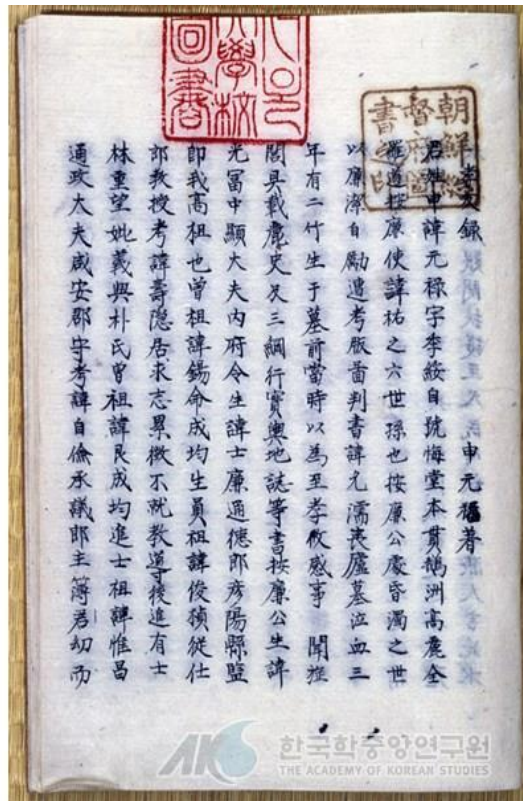 孝友錄 申元福著
君姓申諱元祿字季綏自號悔堂本貫鵝洲高麗全
羅道按廉使諱祐之六世孫也按廉公處昏濁之世
以廉潔自勵遭考版圖判書諱允濡喪廬墓泣血三
年有二竹生于墓前當時以爲至孝攸感事 聞旌
閭具載麗史及三綱行實輿地誌等書按廉公生諱
光富中顯大夫內府令生諱士廉通德郎彦陽縣監
卽我高祖也曾祖諱錫命成均生員祖諱俊禎從仕
郎教授考諱壽隱居求志累徵不就教導後進有士
林重望妣義興朴氏曾祖諱良成均進士祖諱惟昌
通政大夫咸安郡守考諱自儉承議郎主簿君幼而
朝鮮總
督府圖
書之印
서울
大學校
圖書
AKS 한국학중앙연구원
THE ACADEMY OF KOREAN STUDIES